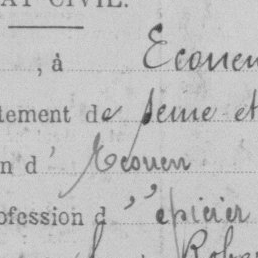 AT CIVIL.
, à Ecouen
tement de Seine et
n d' Ecouen
ofession d'' épicier
Rober